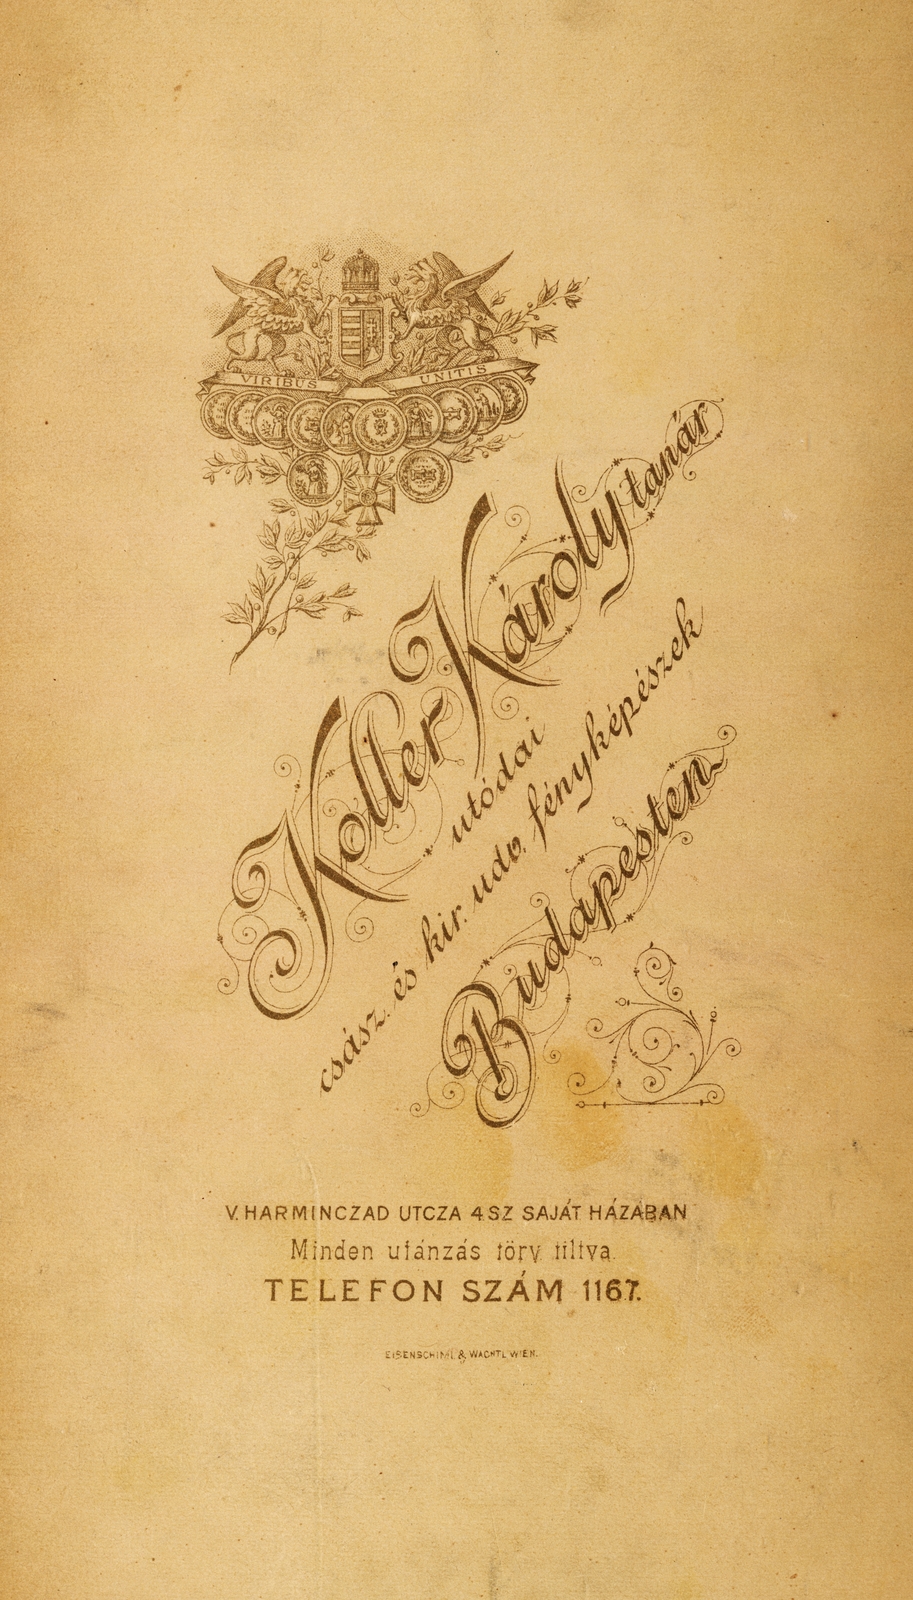 VIRIBUS UNITIS
Koller Károly tanár
utódai
csász. és kir. udv. fényképészek
Budapesten
V. HARMINCZAD UTCZA 4 SZ SAJÁT HÁZÁBAN
Minden utánzás törv. tiltva.
TELEFON SZÁM 1167.
EISENSCHIML & WACHTL WIEN.